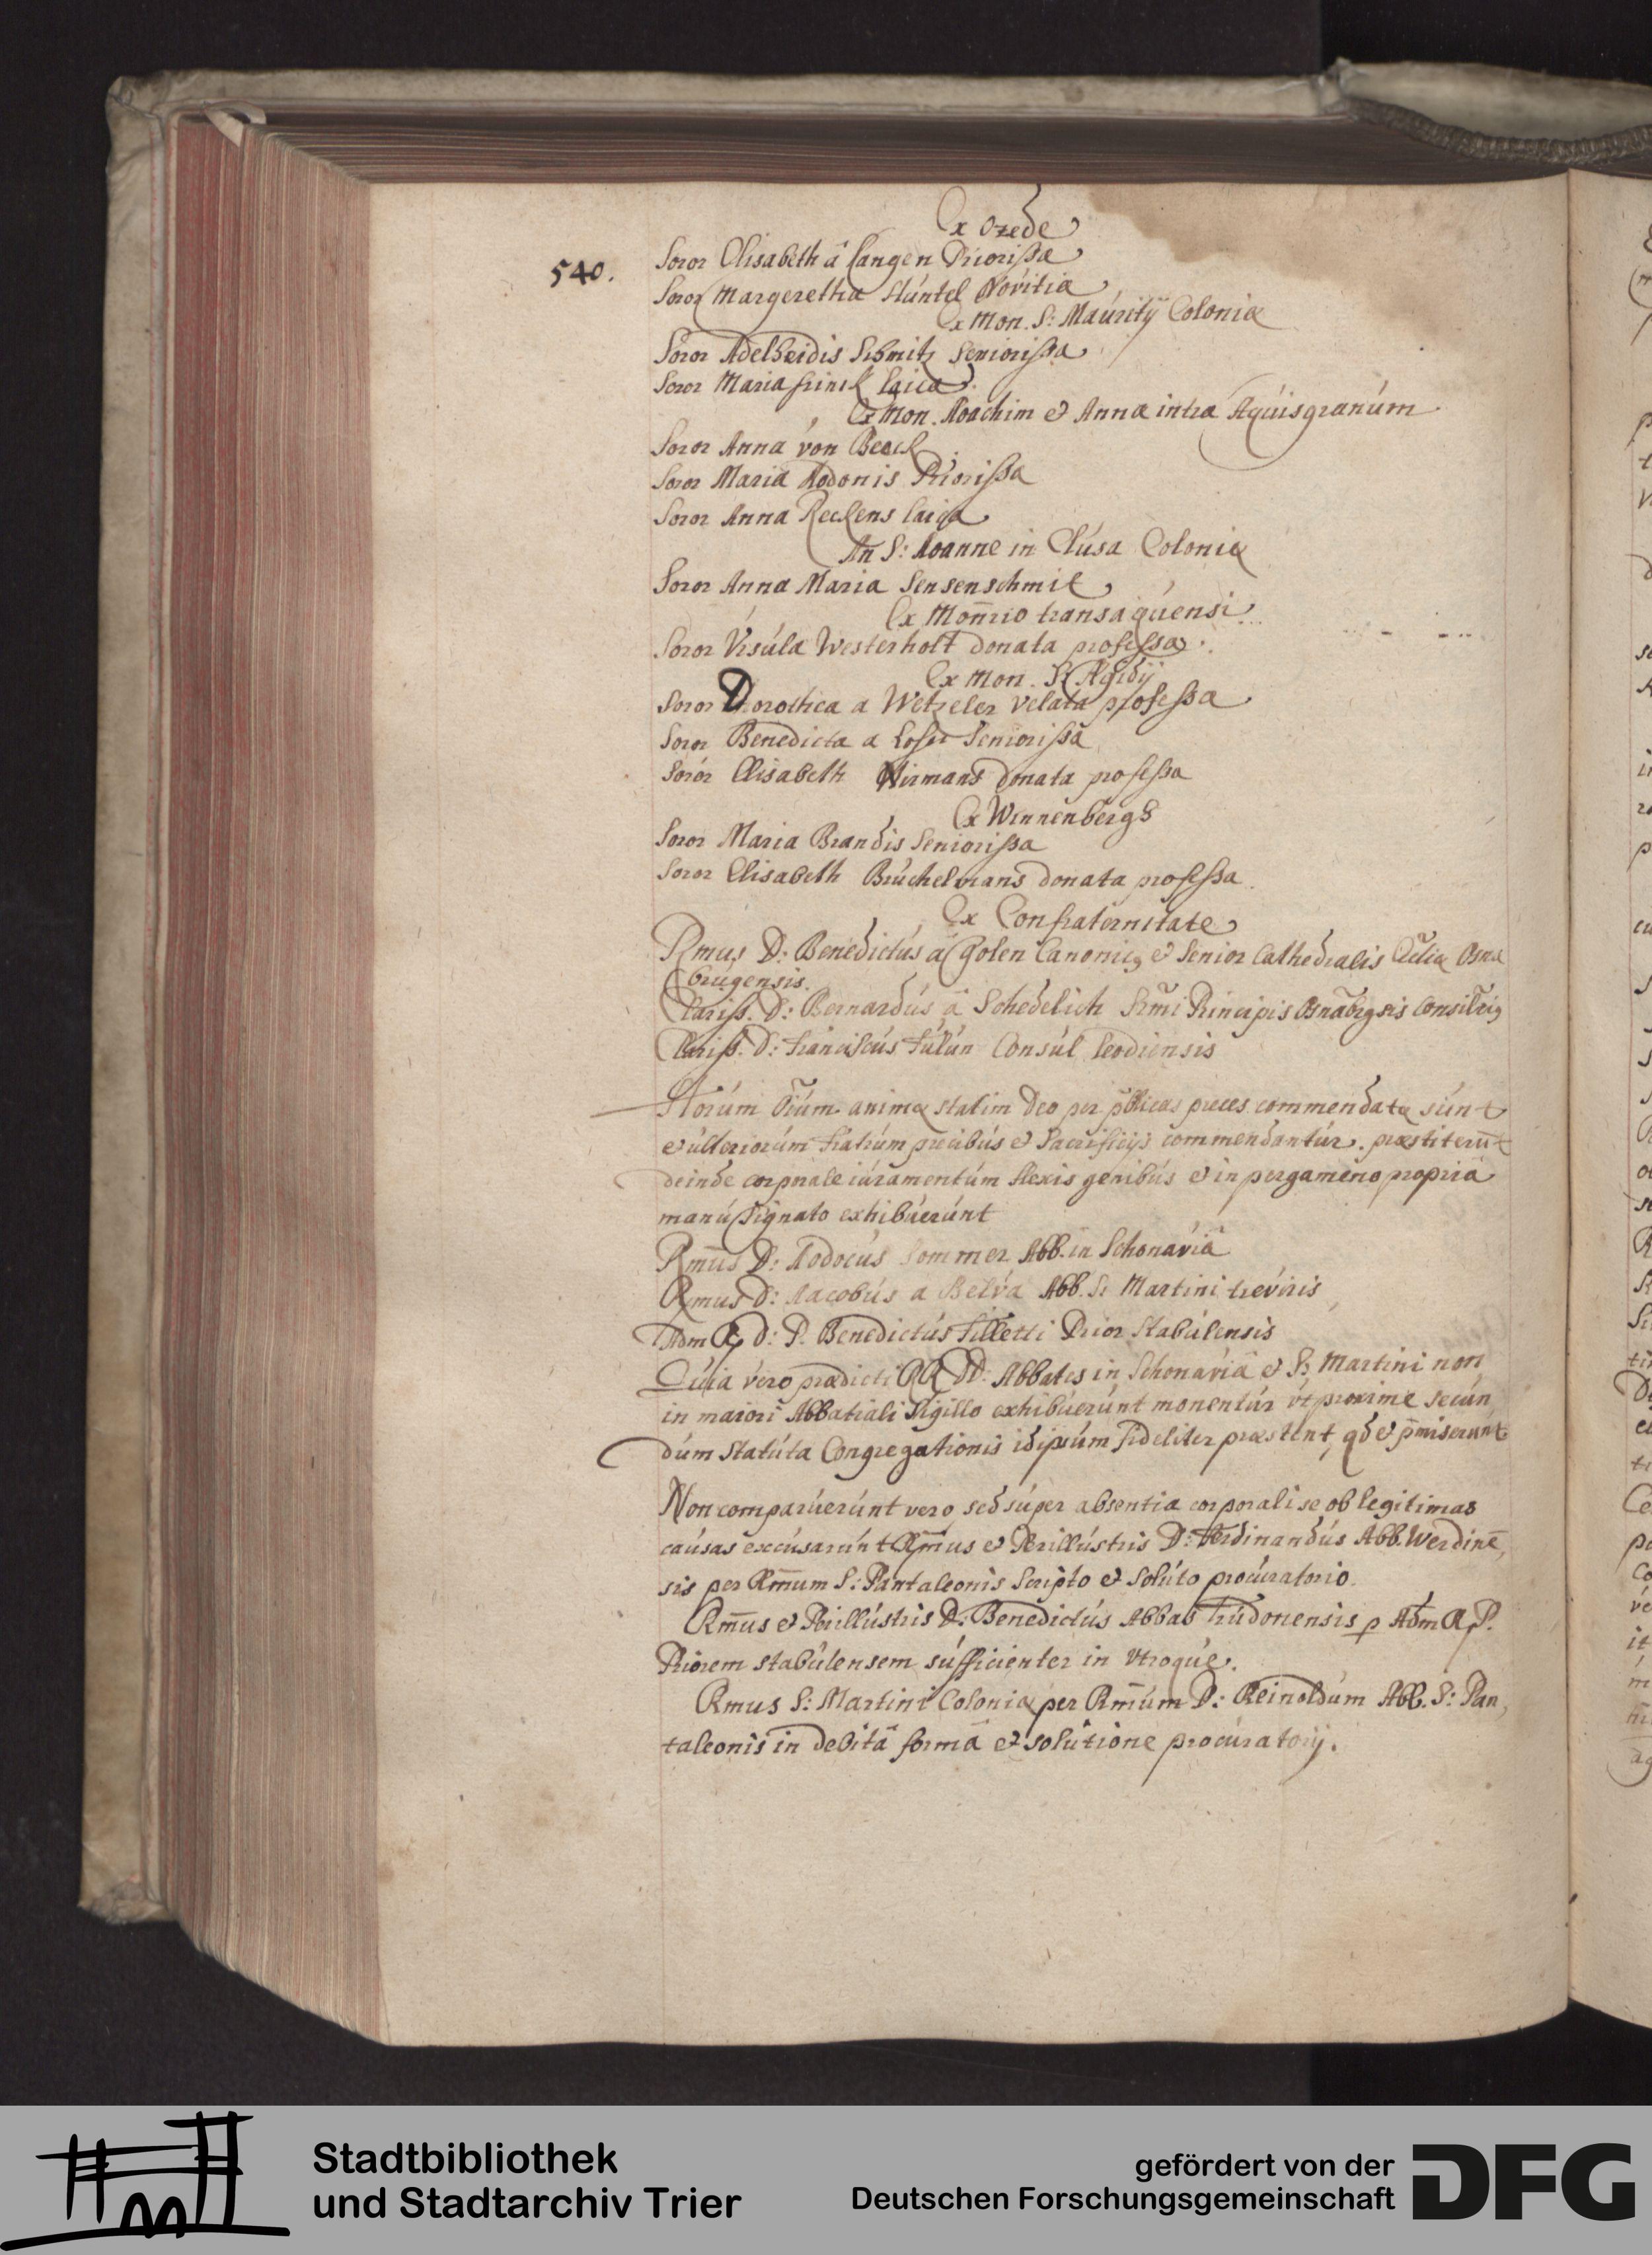 540.
Ex Ozede
Soror Elisabeth â Langen Priorißa
Soror Margeretha Stúntel Novitia
Ex Mon. S: Maúritÿ Coloniæ
Soror Adelheidis Schmitz Seniorißa
Soror Maria frinck laica
Ex Mon. Ioachim et Annæ intra Aqúisgranúm
Soror Anna von Beeck
Soror Maria Iodonis Priorißa
Soror Anna Reckens laica
An S: Ioanne in Clúsa Coloniæ
Soror Anna Maria Sensenschmit
Ex Moñrio transaqúensi
Soror Vrsúla Westerholt donata profeßa
Ex Mon. S: Ægidÿ
Soror Dorothea a Wetzeler velata profeßa
Soror Benedicta a Seniorißa
Soror Elisabeth Nirmans donata profeßa
Ex Winnenbergh
Soror Maria Brandis Seniorißa
Soror Elisabeth Brúchelmans donata profeßa
Ex Confraternitate
Rmus D: Benedictús â Golen Canonicg et Senior Cathedralis Ecliæ Osna
brúgensis.
Clariss. D: Bernardús â Schedelich Srmi Principis Osnabrgsis Consiliarig
Clariss. D: franciscús fúlún Consúl leodiensis
Horúm oium animæ statim Deo per pblicas preces commendatæ súnt
et últeriorúm fratrúm precibús et Sacrificÿs commendantúr. præstiterut
deinde corporale iúramentúm flexis genibús et in pergameno propriâ
manú signato exhibúerúnt
Rmus D: Iodocús Sommer Abb. in Schonaviâ
Rmus D: Iacobús a Belva Abb. S: Martini treviris
Adm R d: P. Benedictús filletti Prior Stabúlensis
Qúia vero prædicti RR DD: Abbates in Schonaviâ et S: Martini non
in maiori Abbatiali Sigillo exhibúerúnt monentúr vt proxime secún
dúm Statúta Congregationis id ipsúm fideliter præstent, qd et pmiserunt
Non comparúerúnt vero sed súper absentia corporali se ob legitimas
caúsas excúsarúnt Rmus et Perillústris D: ferdinandús Abb. Werdinẽ,
sis per Rmum S: Pantaleonis Scripto et Solúto procúratorio.
Rmus et Perillústris D: Benedictús Abbas Trúdonensis p Adm R P.
Priorem stabúlensem súfficienter in vtroqúe.
Rmus S: Martini Coloniæ per Rmúm D: Reinoldúm Abb. S: Pan,
taleonis in debitâ formâ et solútione procúratorÿ.
Stadtbibliothek
und Stadtarchiv Trier
gefördert von der
Deutschen Forschungsgemeinschaft
DFG